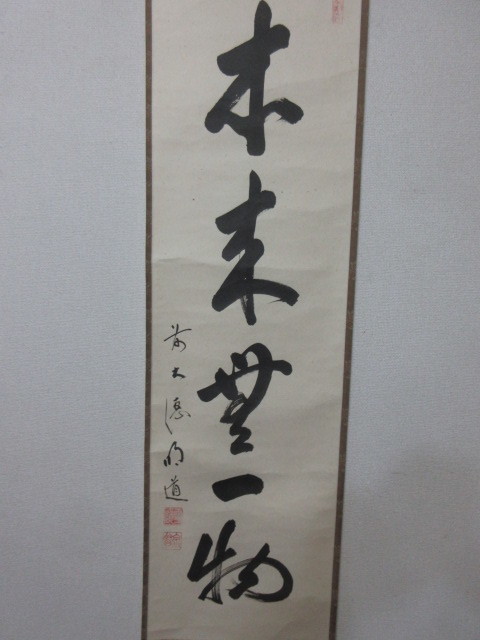 本来無一物
前大徳明道